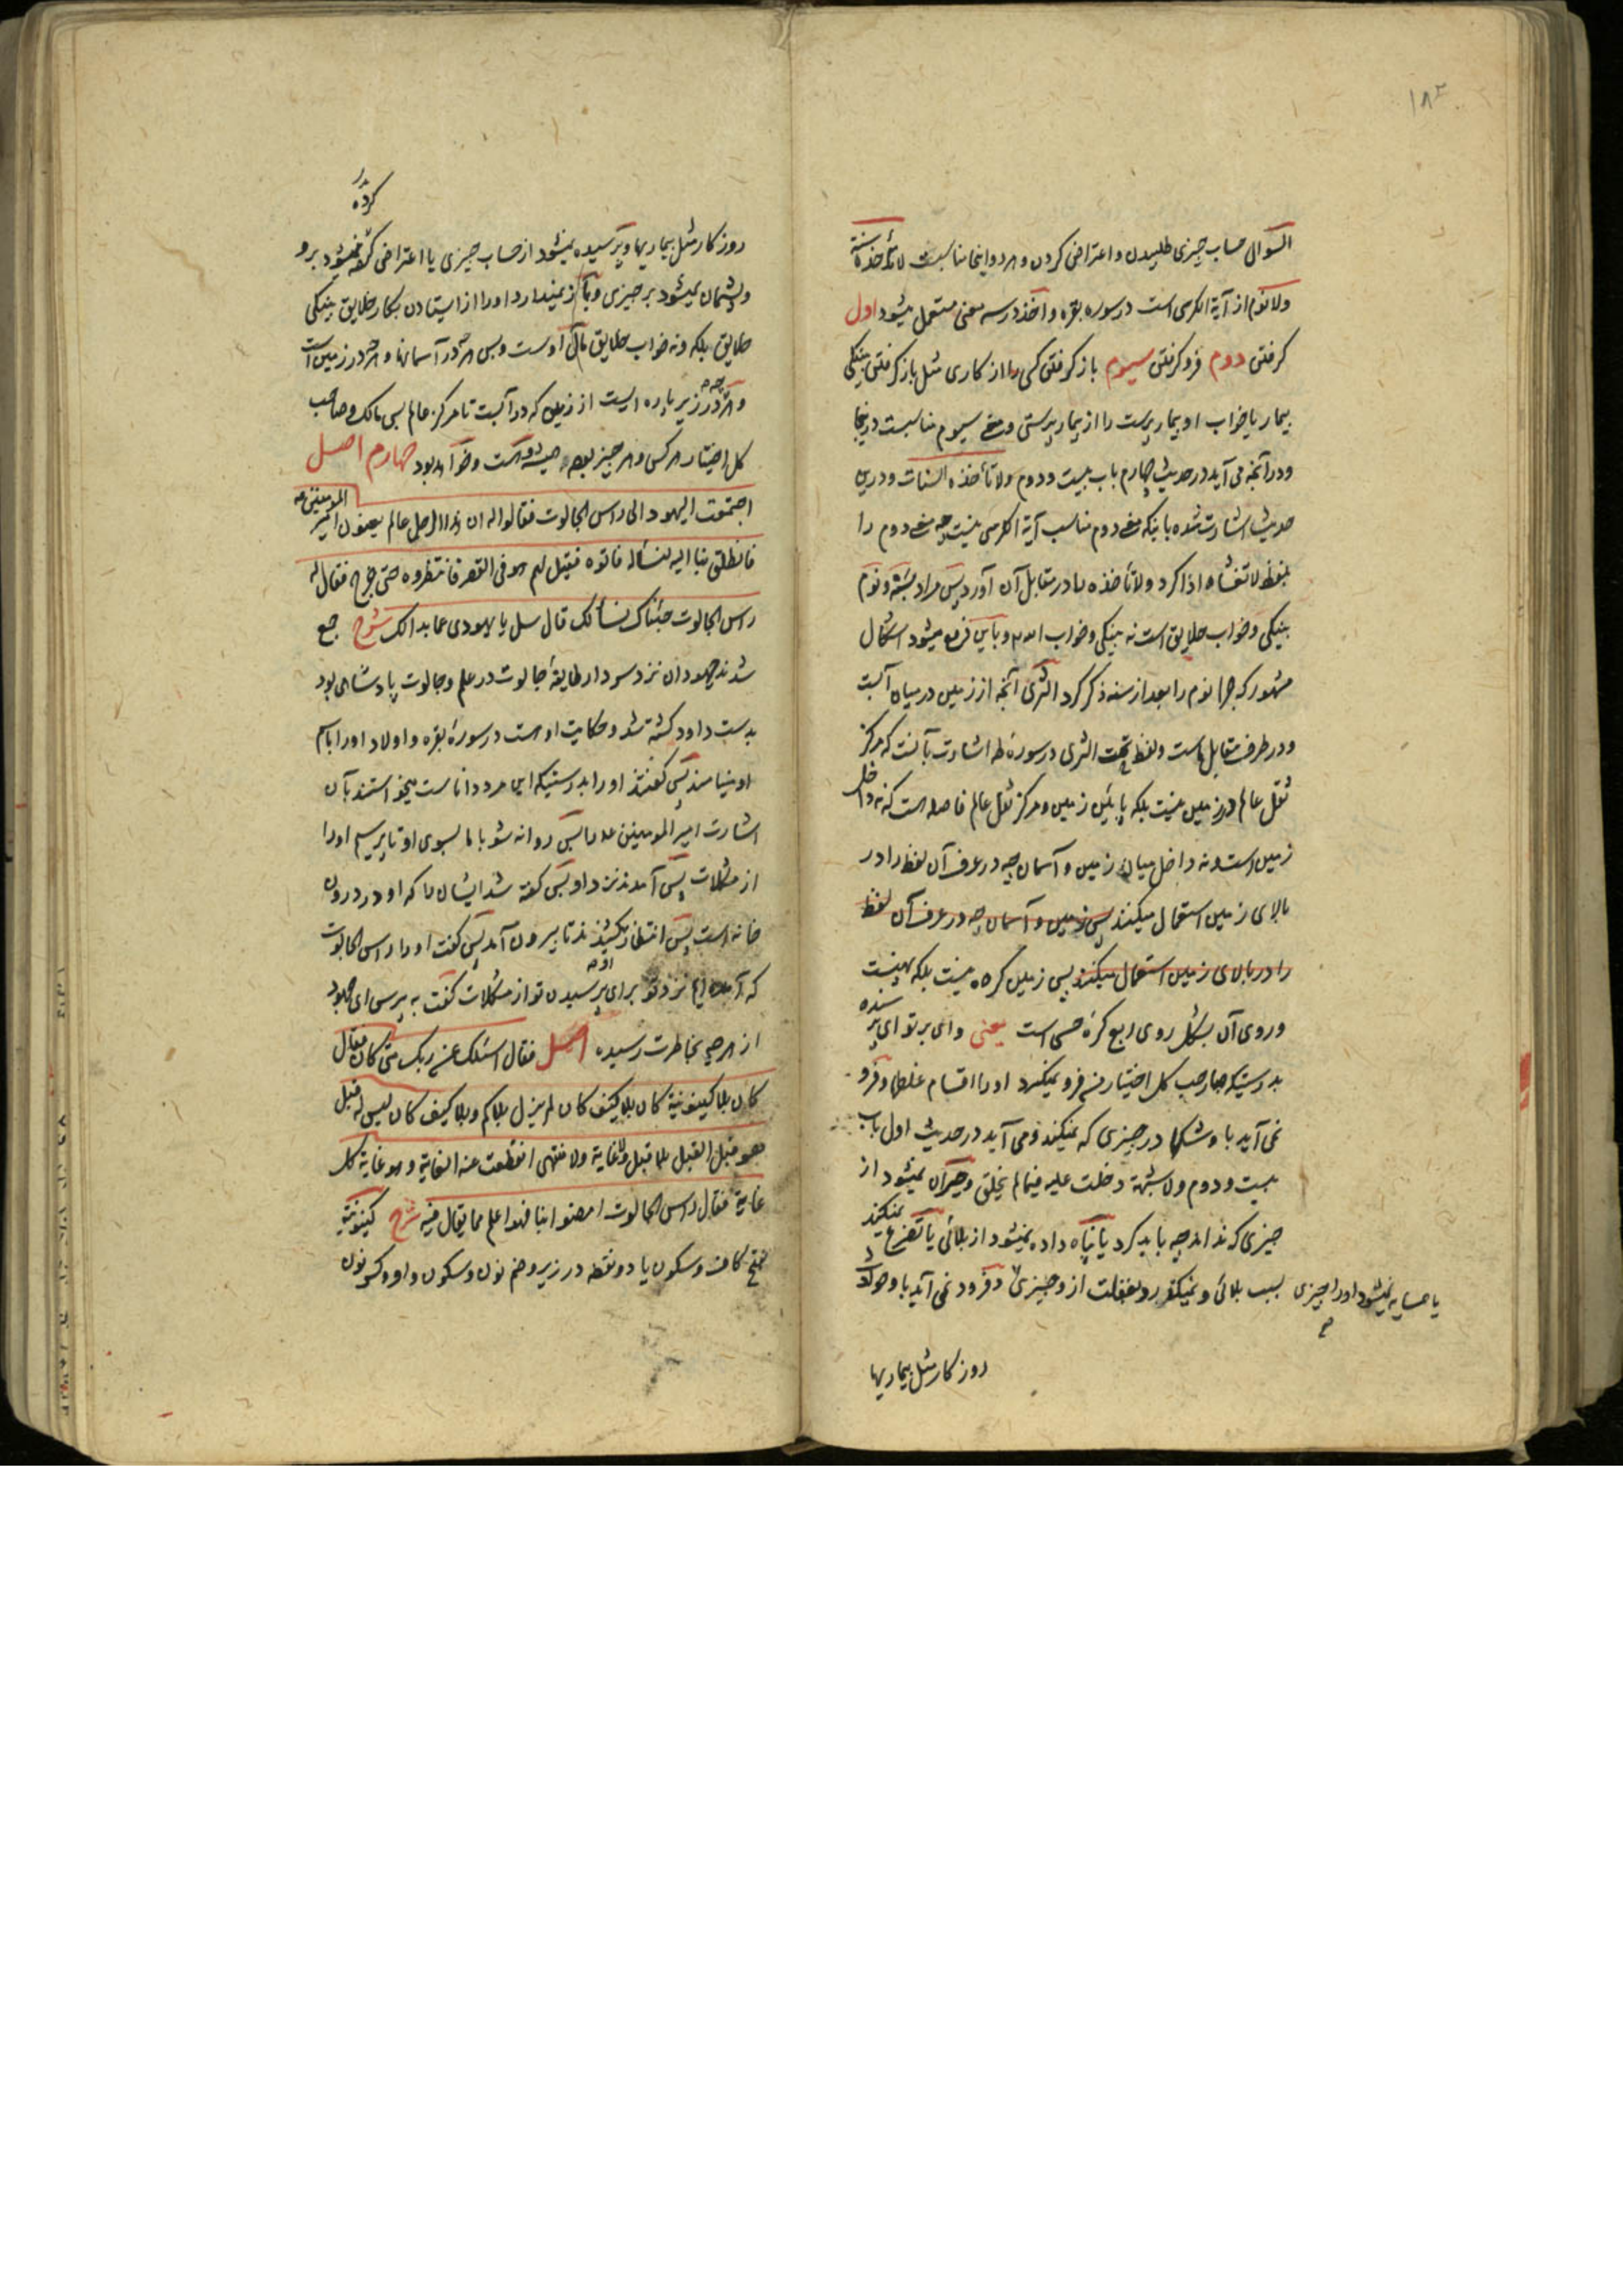 ۱۸۳
السؤال حساب چیزی طلبیدن و اعتراض کردن و هر دو اینجا مناسبست لا تأخذه سنة
ولا نوم از آیة الکرسی است در سوره بقره و اخذ در سه معنی مستعمل میشود اول
کرفتن دوم فرو کرفتن سیوم باز کرفتن کسی را از کاری مثل باز کرفتن پینکی
بیمار یا خواب او بیمار پرست را از بیمار پرستی و معنی سیوم مناسبست در اینجا
و در آنچه می آید در حدیث چهارم باب بیست و دوم ولا تأخذه السنات و درین
حدیث اشارت شده باینکه معنی دوم مناسب آیة الکرسی نیست چه معنی دوم را
بلفظ لا تغشاه ادا کرد و لا تأخذه را در مقابل آن آورد پس مراد بسنة و نوم
پینکی و خواب خلایق است نه پینکی و خواب الله و باین دفع میشود اشکال
مشهور که چرا نوم را بعد از سنه ذکر کرد الثری آنچه از زمین در میان آبست
و در طرف مقابل ماست و لفظ تحت الثری در سورۀ طه اشارت بآنست که مرکز
ثقل عالم در زمین نیست بلکه پایین زمین و مرکز ثقل عالم فاصله است که نه داخل
زمین است و نه داخل میان زمین و آسمان چه در عرف آن لفظ را در
بالای زمین استعمال میکنند پس زمین و آسمان چه در عرف آن لفظ
را در بالای زمین استعمال میکنند پس زمین کره نیست بلکه پهنست
و روی آن بشکل روی ربع کرۀ حسی است یعنی وای بر تو ای پرسنده
بدرستیکه صاحب کل اختیار من فرو نمیکیرد او را اقسام غلطها و فرو
نمی آید باو شکها در چیزی که نمیکند و می آید در حدیث اول باب
بیست و دوم ولا شبهة دخلت علیه فیما لم یخلق و حیران نمیشود از
چیزی که نداند چه باید کرد یا پناه داده نمیشود از بلائی یا تضرع نمیکند
یا همسایه نمیشود او را چیزی بسبب بلائی و نمیکذرد بغفلت از و چیزی و فرود نمی آید باو حوادث
روز کار مثل بیماریها
کرده
روز کار مثل بیماریها و پرسیده نمیشود از حساب چیزی یا اعتراض کرده نمیشود برو
و پشیمان نمیشود بر چیزی و باز نمیدارد او را از ایستادن بکار خلایق پینکی
خلایق بلکه و نه خواب خلایق مال اوست و بس هر چه در آسمانها و هر چه در زمین است
و هر چه در زیر پاره ایست از زمین که در آبست تا مرکز عالم پس مالک و صاحب
کل اختیار هر کس و هر چیز همیشه او است و خواهد بود چهارم اصل
اجتمعت الیهود الی راس الجالوت فقالوا له ان هذا الرجل عالم یعنون امیر المومنین ع
فانطلق بنا الیه نسأله فاتوه فقیل لهم هو فی القصر فانتظروه حتی خرج فقال له
راس الجالوت جئناک نسألک قال سل یا یهودی عما بدا لک شرح جمع
شدند جهودان نزد سردار طایفۀ جالوت در علم و جالوت پادشاهی بود
بدست داود کشته شد و حکایت او هست در سورۀ بقره و اولاد او را باسم
او مینامند پس کفتند او را بدرستیکه این مرد داناست میخواستند بآن
اشارت امیر المومنین ع را پس روانه شو با ما بسوی او تا پرسیم او را
از مشکلات پس آمدند نزد او پس کفته شد ایشان را که او در درون
خانه است پس انتظار کشیدند تا بیرون آمد پس کفت او را راس الجالوت
که آمده ایم نزد تو برای پرسیدن تو از مشکلات کفت بپرس ای جهود
از هر چه بخاطرت رسیده اصل فقال اسئلک عن ربک متی کان فقال
کان بلا کینونیة کان بلا کیف کان لم یزل بلا کم و بلا کیف کان لیس له قبل
هو قبل القبل بلا قبل ولا غایة ولا منتهی انقطعت عنه الغایة و هو غایة کل
غایة فقال راس الجالوت امضوا بنا فهو اعلم مما یقال فیه شرح کینونیة
بفتح کاف و سکون یا دو نقطه در زیر و ضم نون و سکون واو و کسر نون